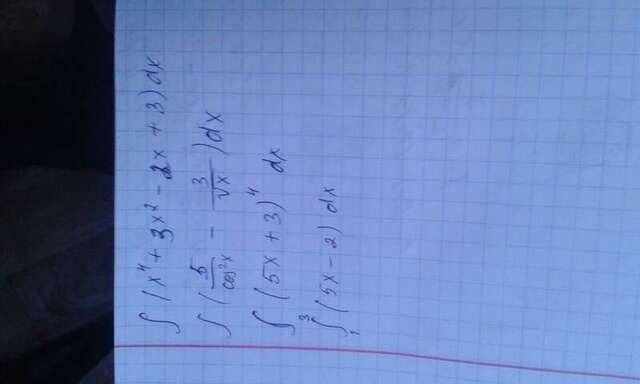 ∫ (x⁴ + 3x² - 2x + 3) dx
∫ (5/cos²x - 3/√x) dx
∫ (5x + 3)⁴ dx
∫₁³ (5x - 2) dx